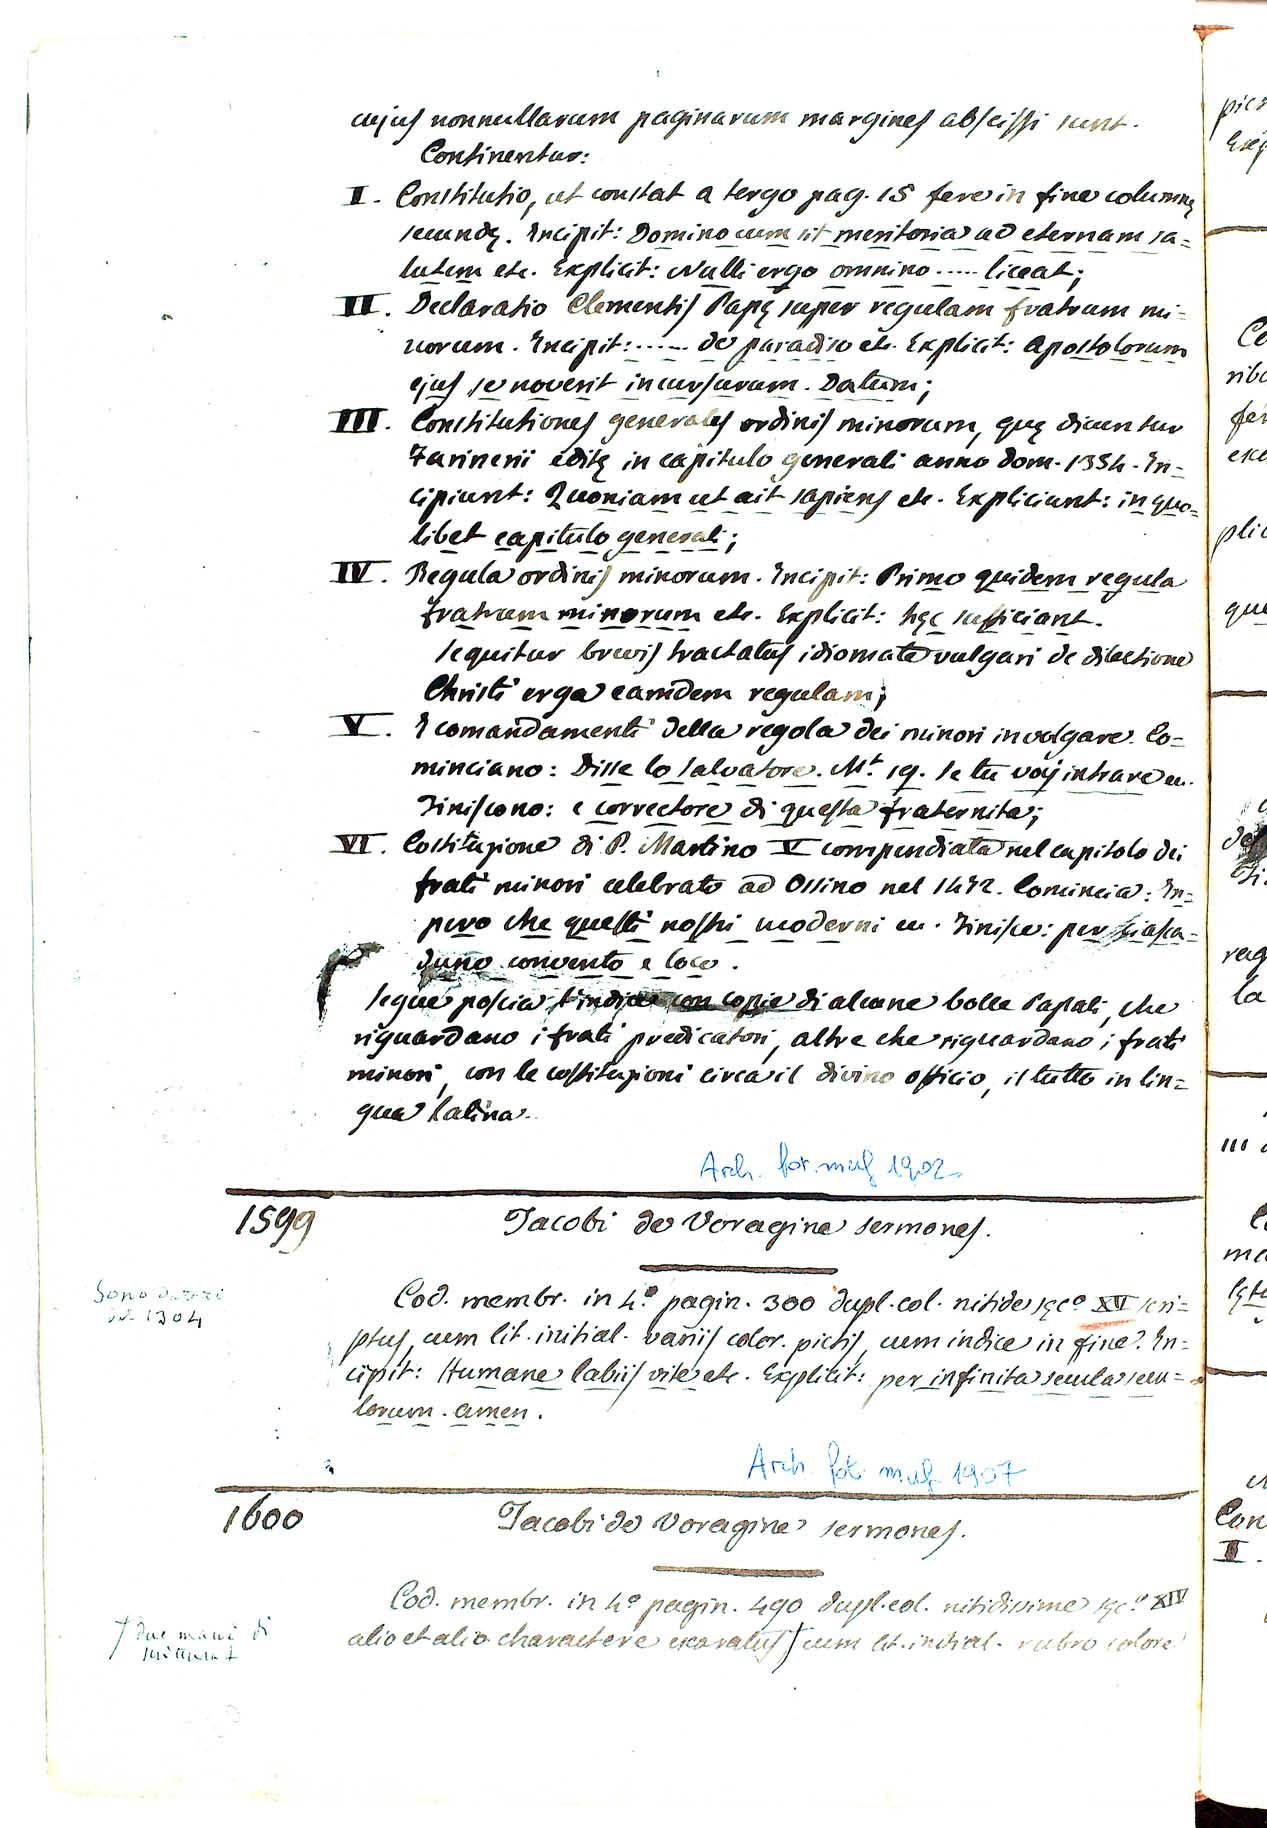 cujus nonnullarum paginarum margines abscissi sunt.
Continentur:
I. Constitutio, ut constat a tergo pag. 15 fere in fine columnę
secundę. Incipit: Domino cum sit meritoria ad eternam sa=
lutem etc. Explicit: Nulli ergo omnino ..... liceat;
II. Declaratio Clementis Papę super regulam fratrum mi=
norum. Incipit: ..... de paradiso etc. Explicit: Apostolorum
ejus se noverit incursurum. Datum;
III. Constitutiones generales ordinis minorum, quę dicuntur
Farinerii editę in capitulo generali anno dom. 1354. In=
cipiunt: Quoniam ut ait sapiens etc. Expliciunt: in quo=
libet capitulo generali;
IV. Regula ordinis minorum. Incipit: Primo quidem regula
fratrum minorum etc. Explicit: hęc sufficiant.
Sequitur brevis tractatus idiomate vulgari de dilectione
Christi erga eamdem regulam;
V. I comandamenti della regola dei minori in volgare. Co=
minciano: Disse lo Salvatore. M.t 19. Se tu voj intrare ec.
Finiscono: e correctore di questa fraternita;
VI. Costituzione di P. Martino V compendiata nel capitolo dei
frati minori celebrato ad Ossino nel 1472. Comincia: In=
pero che questi nostri moderni ec. Finisce: per ciasca=
duno convento e loco.
Segue poscia l'indice con copie di alcune bolle Papali, che
riguardano i frati predicatori, altre che riguardano i frati
minori, con le costituzioni circa il divino officio, il tutto in lin=
gua latina.
Arch. fot. mus 1902
1599 Jacobi de Voragine sermones.
Sono
del 1304
Cod. membr. in 4.o pagin. 300 dupl. col. nitide sęc.o XV scri=
ptus, cum lit. initial. variis color. pictis, cum indice in fine. In=
cipit: Humane labiis vite etc. Explicit: per infinita secula secu=
lorum. amen.
Arch. fot. mus 1907
1600 Jacobi de Voragine sermones.
Cod. membr. in 4.o pagin. 490 dupl. col. nitidissime sęc.o XIV
alio et alio charactere exaratus, cum lit. initial. rubro colore
due mani di
scrittura